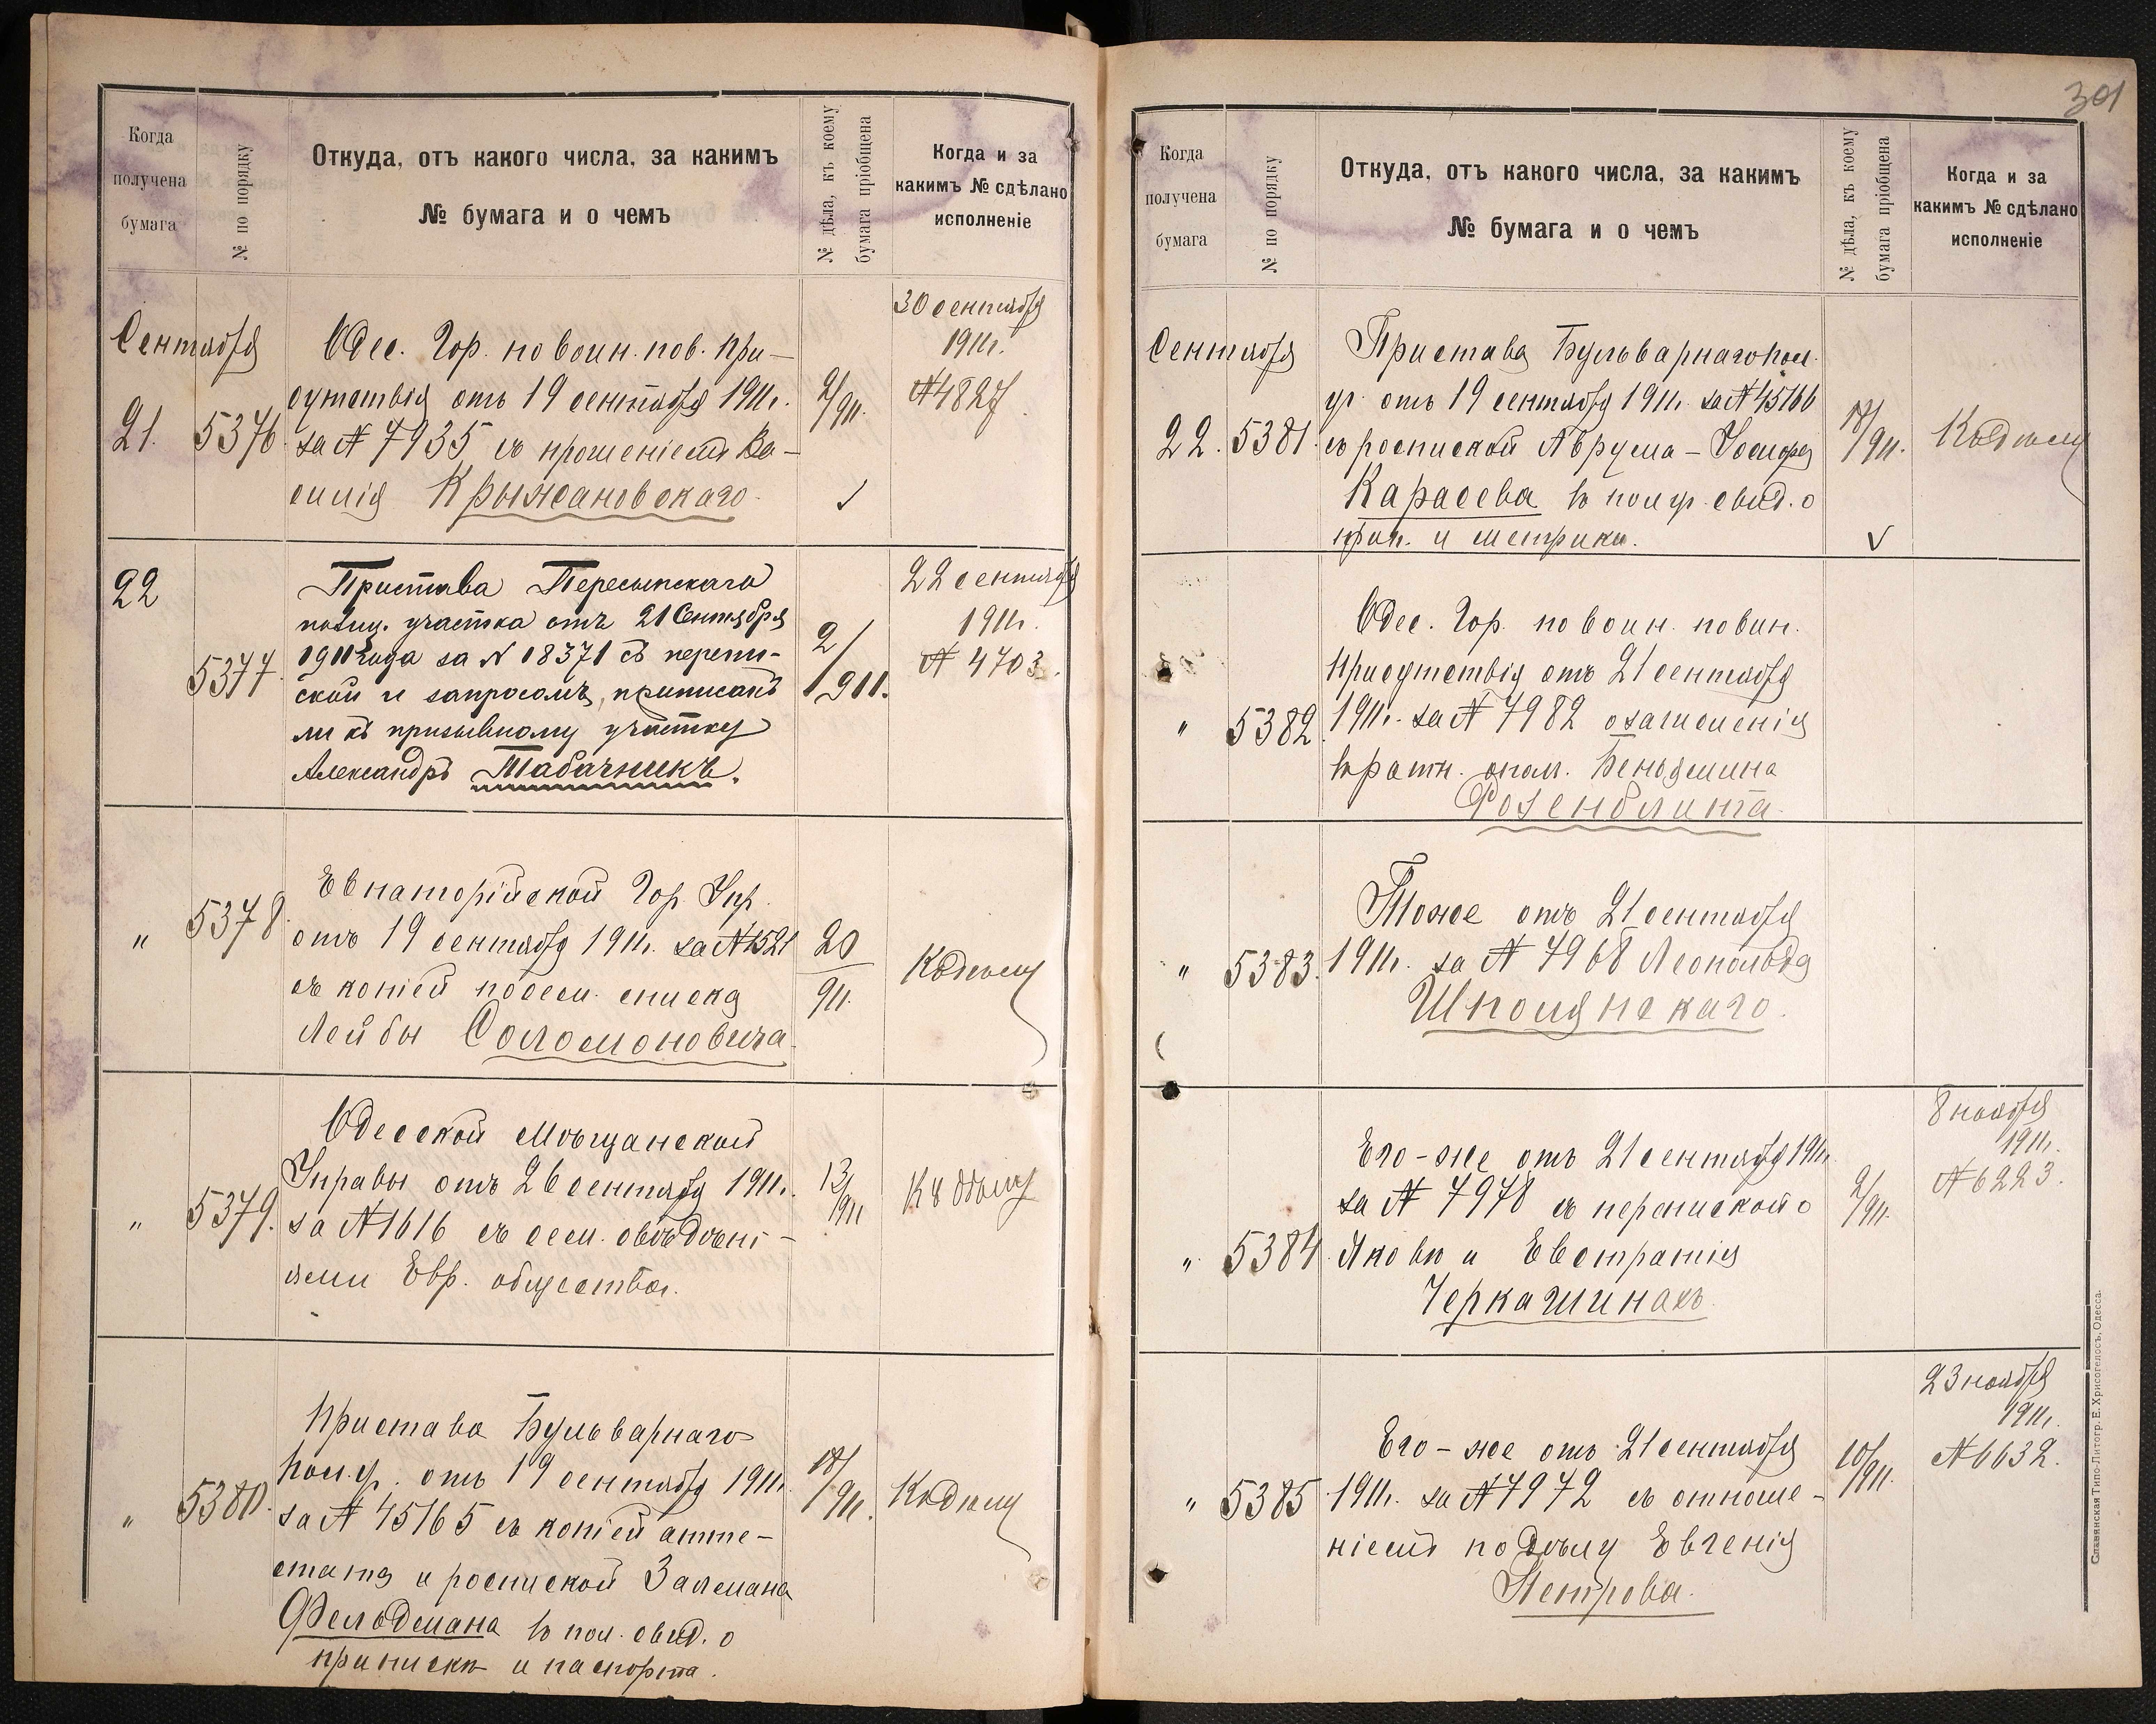 Когда
получена
бумага
№ по порядку
Откуда, отъ какого числа, за какимъ
№ бумага и о чемъ
№ дѣла, къ коему
бумага пріобщена
Когда и за
какимъ № сдѣлано
исполненіе
Сентября
21.
5376.
Одес. Гор. по воин. пов. При-
сутствія отъ 19 сентября 1911г.
за № 7935 съ прошеніемъ Ва-
силія Крыжановскаго.
2/911.
30 сентября
1911г.
№ 4827
22
5377.
Пристава Пересыпскаго
полиц. участка отъ 21 Сентября
1911 года за № 18371 съ перепи-
ской и запросомъ, приписанъ
ли къ призывному участку
Александръ Табачникъ.
2/911.
22 сентября
1911г.
№ 4703.
"
5378.
Евпаторійской Гор. Упр.
отъ 19 сентября 1911г. за № 1521
съ копіей посем. списка
Лейбы Соломоновича.
20/911.
Къ дѣлу
"
5379.
Одесской Мѣщанской
Управы отъ 26 сентября 1911г.
за № 1616 съ сем. свѣдѣні-
ями Евр. общества.
13/911
Къ дѣлу
"
5380.
Пристава Бульварнаго
пол. у. отъ 19 сентября 1911г.
за № 45165 съ копіей атте-
стата и роспиской Залмана
Фельдмана въ пол. свид. о
припискѣ и паспорта.
18/911.
Къ дѣлу
301
Когда
получена
бумага
№ по порядку
Откуда, отъ какого числа, за какимъ
№ бумага и о чемъ
№ дѣла, къ коему
бумага пріобщена
Когда и за
какимъ № сдѣлано
исполненіе
Сентября
22.
5381.
Пристава Бульварнаго пол.
уч. отъ 19 сентября 1911г. за № 45166
съ роспиской Аврума-Іосифа
Карасева въ получ. свид. о
прип. и метрики.
18/911.
Къ дѣлу
"
5382.
Одес. Гор. по воин. повин.
Присутствія отъ 21 сентября
1911г. за № 7982 о зачисленія
въ ратн. опол. Беньямина
Розенблита.
"
5383.
Тоже отъ 21 сентября
1911г. за № 7968 Леопольда
Шполянскаго.
"
5384.
Его-же отъ 21 сентября 1911г.
за № 7978 съ перепиской о
Яковѣ и Евстратія
Черкашинахъ.
2/911.
8 ноября
1911г.
№ 6223.
"
5385
Его-же отъ 21 сентября
1911г. за № 7972 съ отноше-
ніемъ по дѣлу Евгенія
Петрова.
10/911.
23 ноября
1911г.
№ 6632.
Славянская Типо-Литогр. Е. Хрисогелосъ, Одесса.